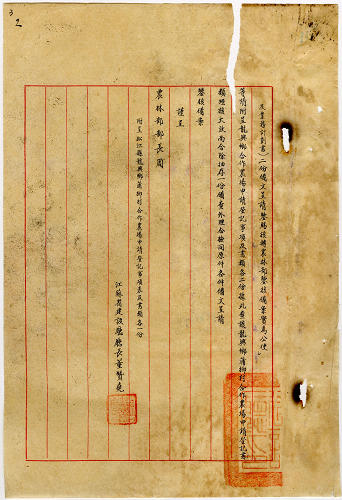 3
2
及業務計劃書）二份備文呈請鑒賜核轉農林部鑒核備案實為公便」
等請附呈龍興鄉合作農場申請登記事項及書類各二份據此查該龍興鄉蒲柳村合作農場申請登記書
類經核大致尚合除抽存一份備查外理合檢同原件各件備文呈請
鑒核備案
謹呈
農林部部長周
附呈松江縣龍興鄉蒲柳村合作農場申請登記事項表及書類各一份
江蘇省建設廳廳長董贊堯